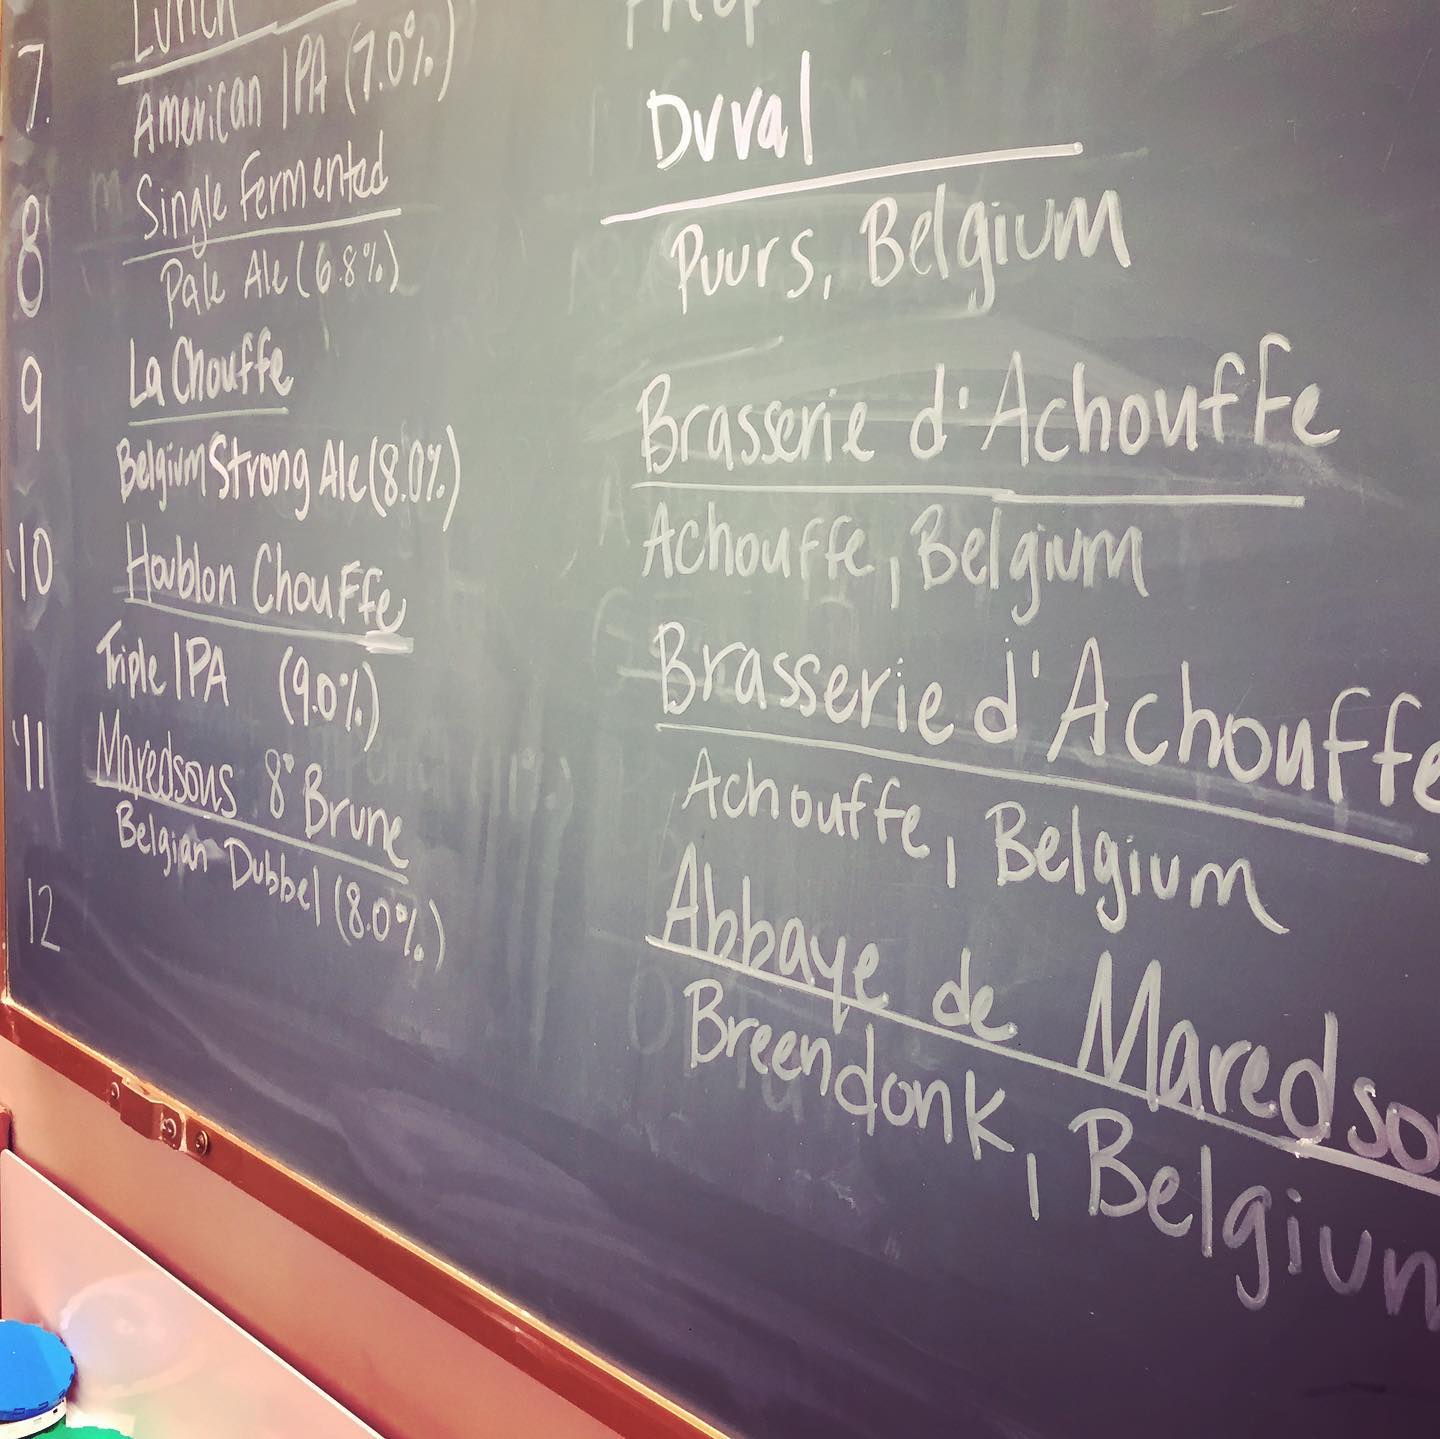 Lunch
7. American IPA (7.0%)
Single Fermented
8 Pale Ale (6.8%)
9 La Chouffe
Belgium Strong Ale (8.0%)
10 Houblon Chouffe
Triple IPA (9.0%)
11 Maredsous 8° Brune
Belgian Dubbel (8.0%)
12
Duval
Puurs, Belgium
Brasserie d'Achouffe
Achouffe, Belgium
Brasserie d'Achouffe
Achouffe, Belgium
Abbaye de Maredso
Breendonk, Belgium